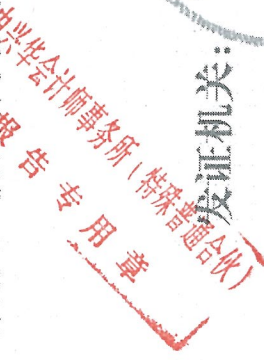 中兴华会计师事务所（特殊普通合伙）
报告专用章
发证机关：